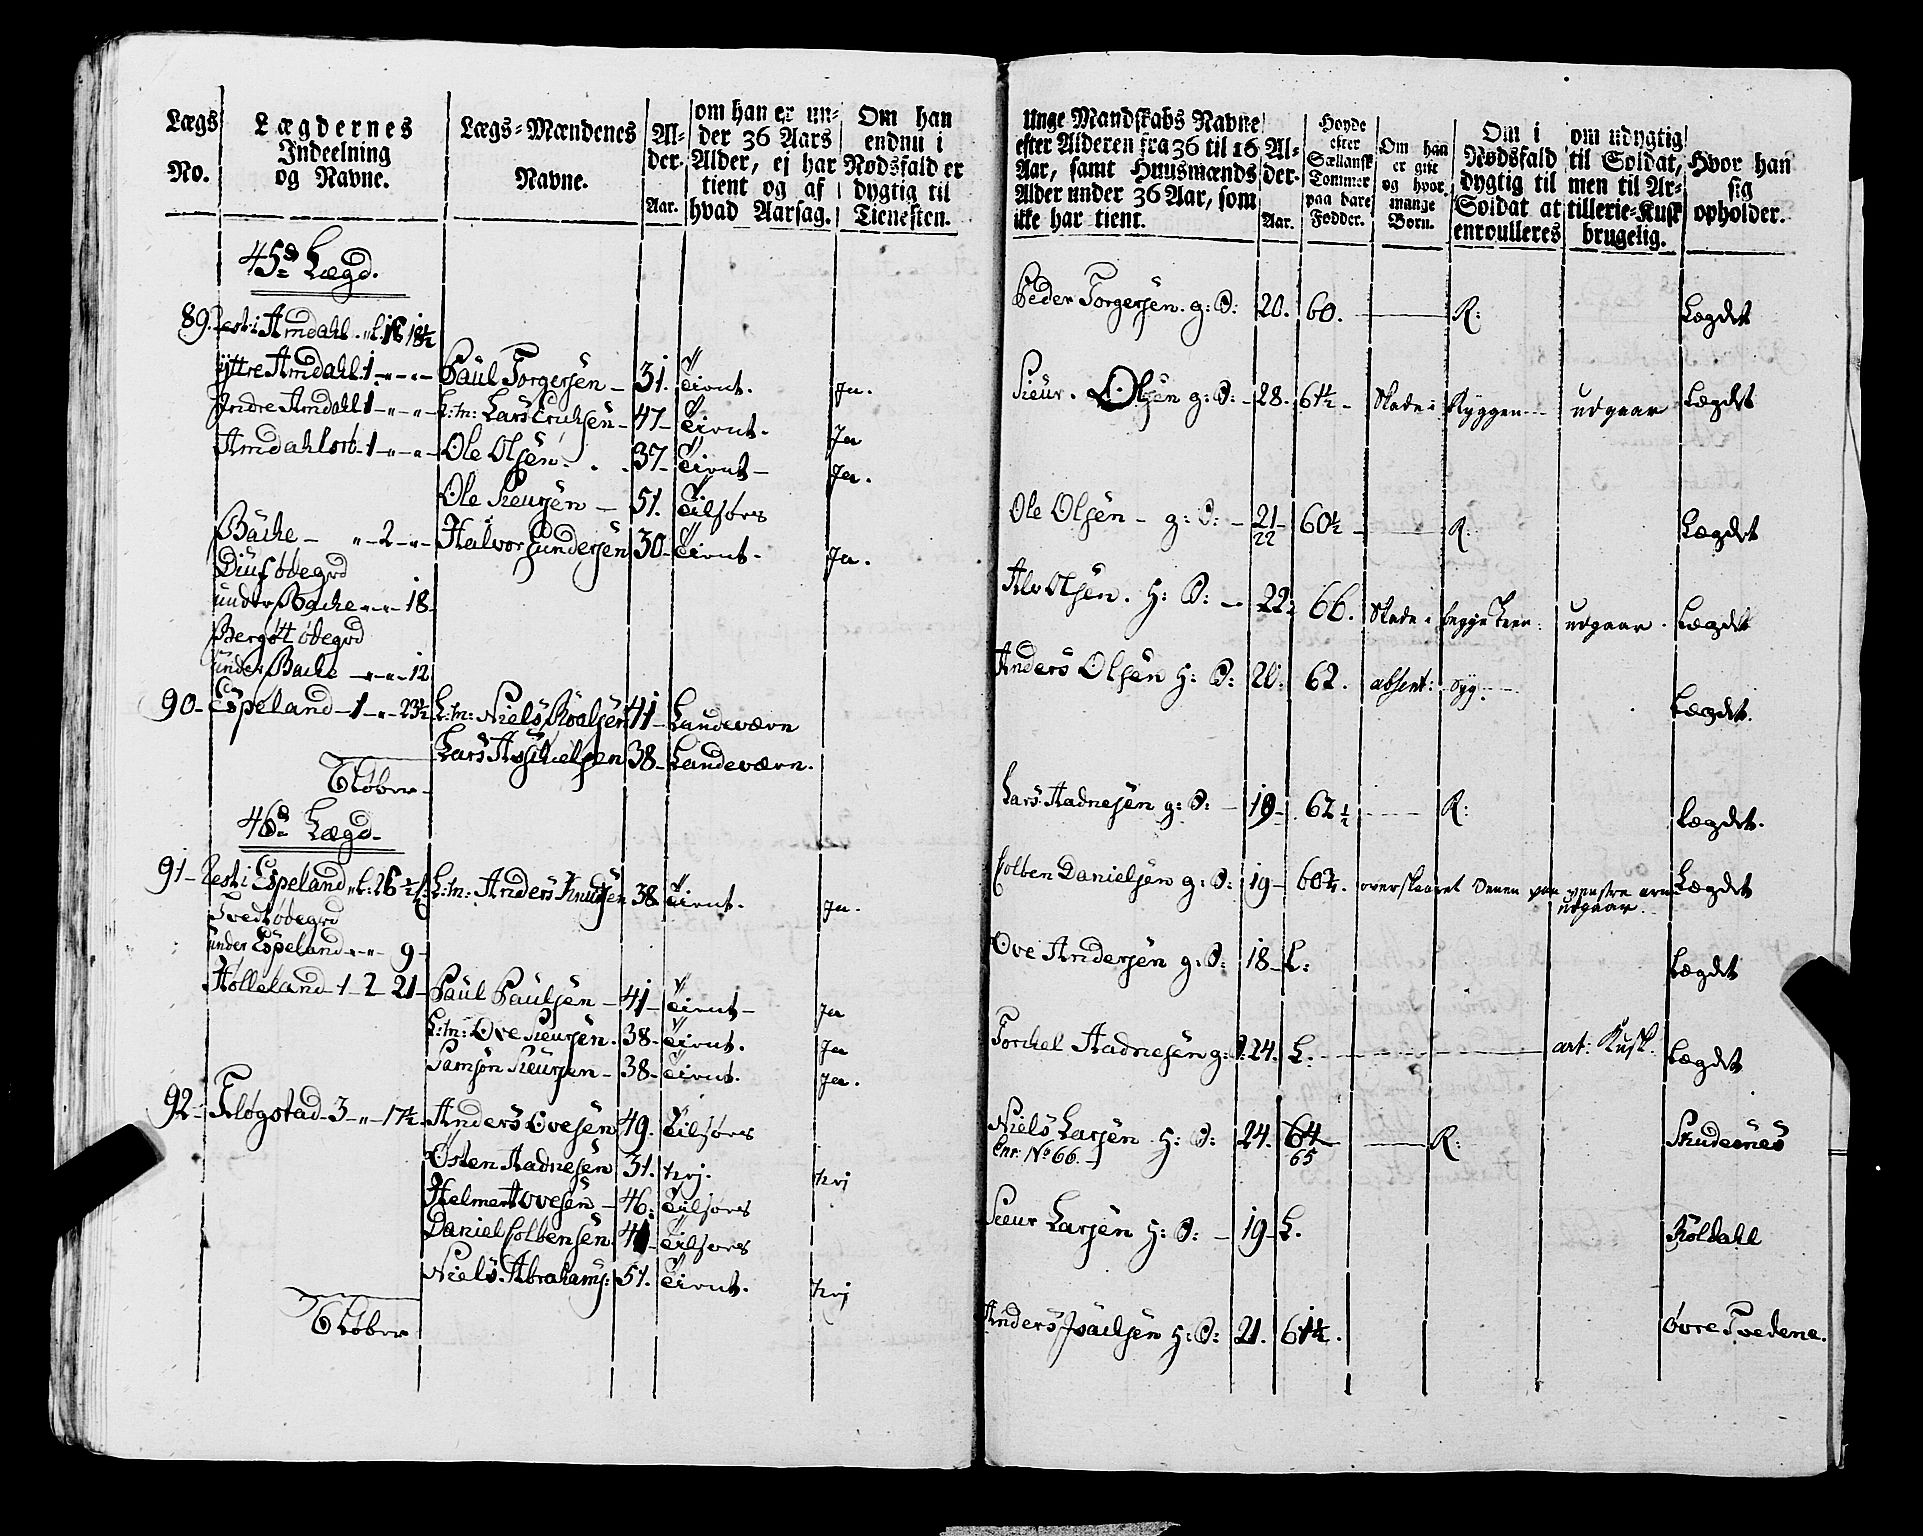 Lægs No.
Lægdernes Indeelning og Navne.
Lægs-Mændenes Navne.
Alder. Aar.
om han er under 36 Aars Alder, ej har tient og af hvad Aarsag.
Om han endnu i Nødsfald er dygtig til Tienesten.
45de Lægd.
89. Rest i Amdahl
Yttre Amdahl 1 Paul Torgersen 31. Tient. Ja.
Indre Amdahl 1 L:m: Lars Erichsen 47 Tient. Ja
Amdahl 1 Ole Olsen 37 Tient Ja.
Ole Sieursen 51. Tilførs
Bache 2 Halvor Gundersen 30 Tient. Ja.
Diuf ødegrd
under Bache 18
Bergøtt ødegrd
under Bache 12
90 Espeland 1 23½ L:m: Niels Roalsen 41 Landeværn
Lars Aschielsen 38 Landeværn.
Tløber
46de Lægd
91 Rest i Espeland L:m: Anders Knudsen 38 Tient. Ja.
Tvedt ødegrd
under Espeland 9
Hølleland 1 2 21 Paul Paulsen 41 Tient Ja
L:m: Ove Sieursen. 38 Tient. Ja
Samson Sieursen 38 Tient. Ja.
92 Fløgstad 3 17½ Anders Ovesen 49. Tilførs
Østen Aadnesen 31. Nej. Nej
Helmer Ovesen 46. Tilførs
Daniel Colbensen Tilførs
Niels Abrahams: 51. Tient. Nej
Tløber
Unge Mandskabs Navne efter Alderen fra 36 til 16 Aar, samt Huusmænds Alder under 36 Aar, som ikke har tient.
Alder. Aar.
Høyde efter Sællansk Tommer paa bare Fødder.
Om han er gift og hvor mange Børn.
Om i Nødsfald dygtig til Soldat at enroulleres
om udygtig til Soldat, men til Artillerie-Kusk brugelig.
Hvor han sig opholder.
Peder Torgersen. g: S: 20. 60. R: Lægdet
Sieur. Olsen g: S: 28. 61½ Skade i Ryggen udgaar Lægdet
Ole Olsen g: S: 21 22 60½ R: Lægdet
Alv Olsen. H: S: 22 66. Skade i begge udgaar. Lægdet
Anders Olsen H: S: 20. 62. absent: syg. Lægdet.
Lars Aadnesen g: S: 19 62½ R: Lægdet.
Colben Danielsen g: S: 19 60½. overskaaret Senen paa venstre arm udgaar Lægdet
Ove Andersen g: S: 18 L: Lægdet
Torchel Aadnesen g: S: 24. L. art: Kusk. Lægdet
Niels Larsen H: S: 24. 64 65 R: Skudesnes
Enr: No 66.
Sieur Larsen H: S: 19 L. Røldahl
Anders Isaelsen H: S: 21. 61½. Øvre Tvedene.